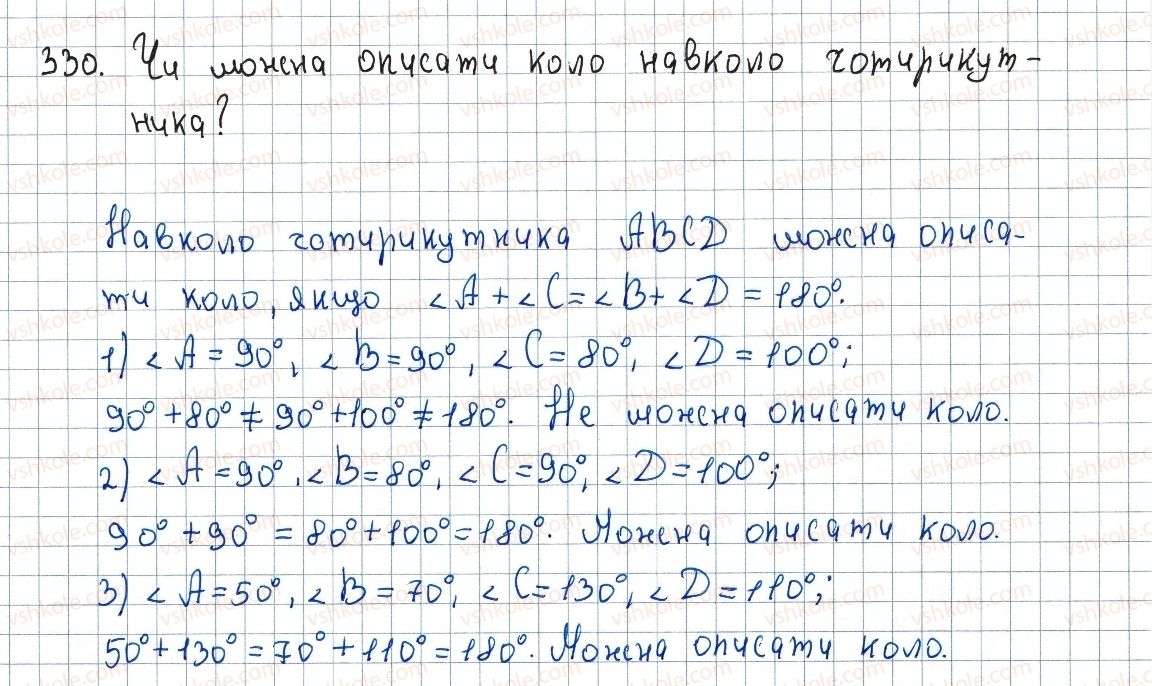 330. Чи можна описати коло навколо чотирикут-
ника?
Навколо чотирикутника ABCD можна описа-
ти коло, якщо ∠A + ∠C = ∠B + ∠D = 180°.
1) ∠A = 90°, ∠B = 90°, ∠C = 80°, ∠D = 100°;
90° + 80° ≠ 90° + 100° ≠ 180°. Не можна описати коло.
2) ∠A = 90°, ∠B = 80°, ∠C = 90°, ∠D = 100°;
90° + 90° = 80° + 100° = 180°. Можна описати коло.
3) ∠A = 50°, ∠B = 70°, ∠C = 130°, ∠D = 110°;
50° + 130° = 70° + 110° = 180°. Можна описати коло.